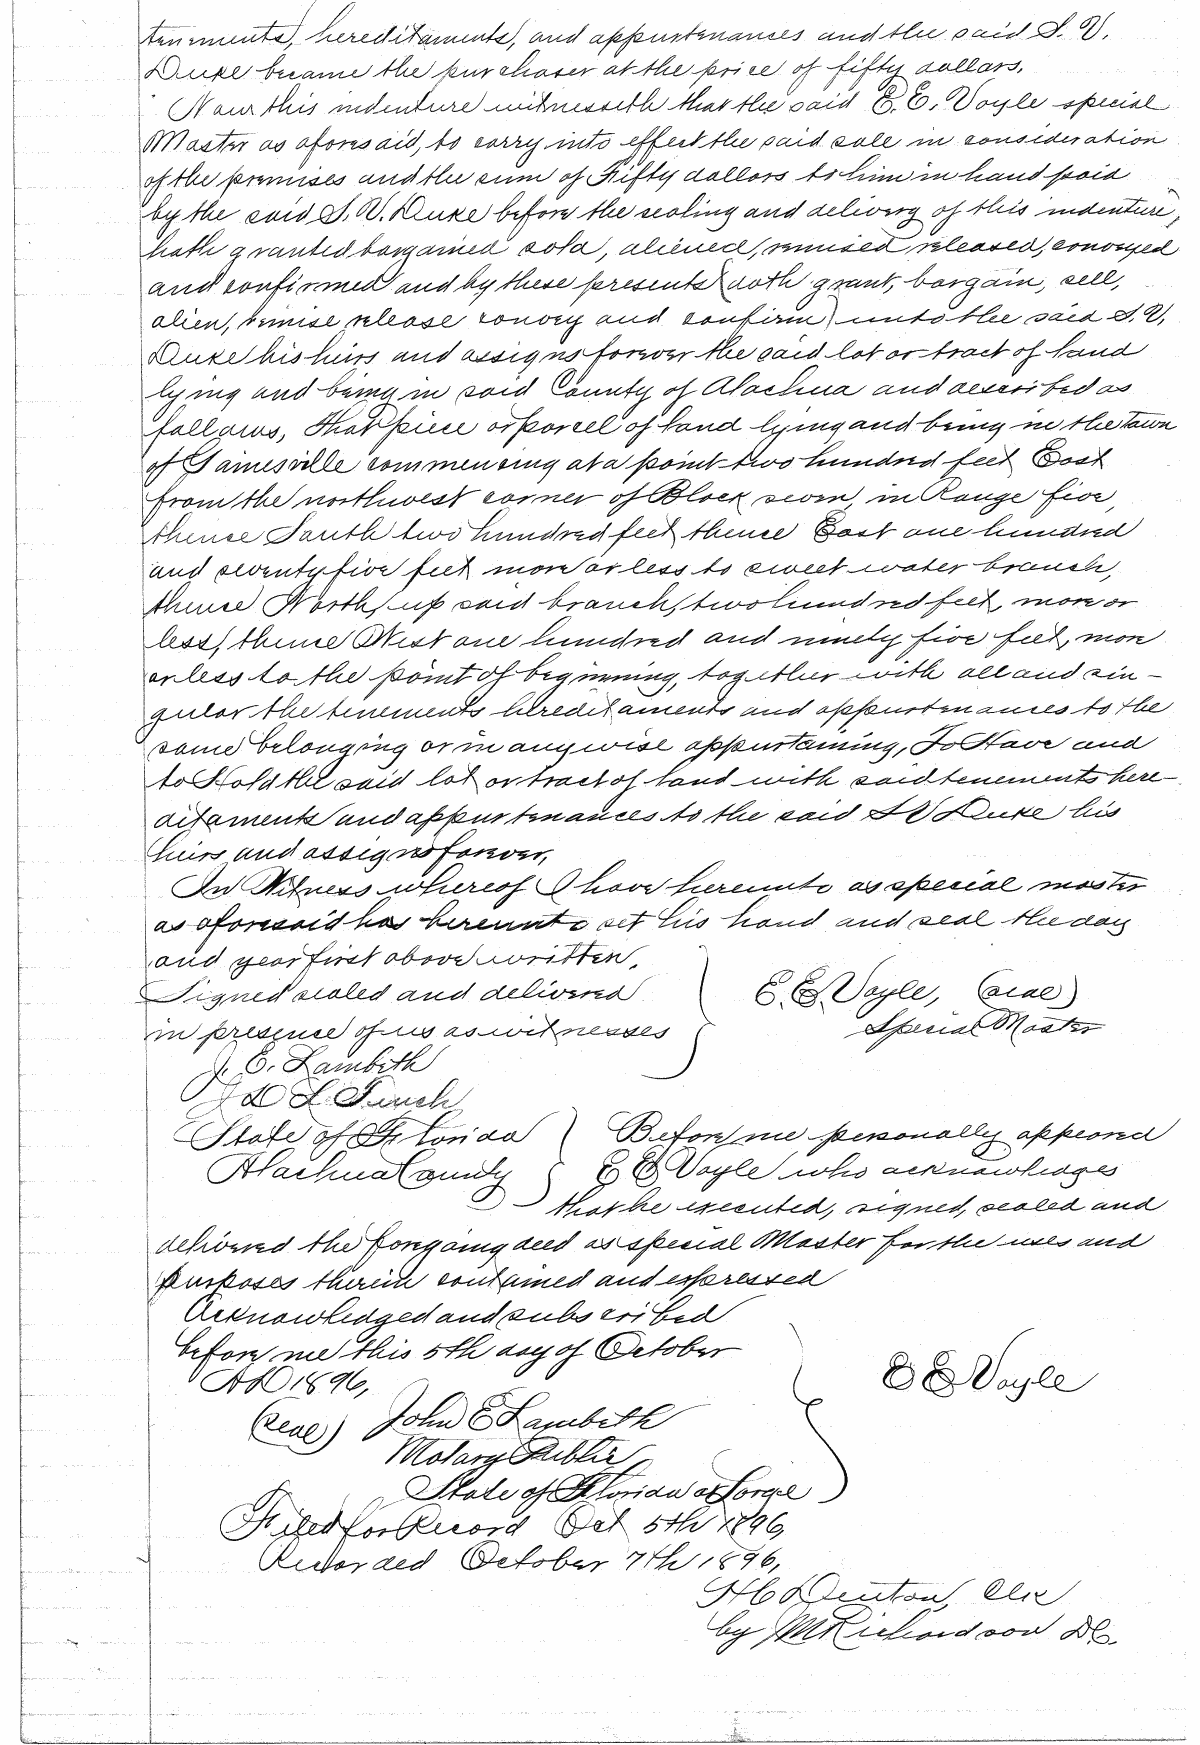 tenements, hereditaments, and appurtenances and the said S. V.
Duke became the purchaser at the price of fifty dollars.
Now this indenture witnesseth that the said E. E. Voyle special
Master as aforesaid, to carry into effect the said sale in consideration
of the premises and the sum of Fifty dollars to him in hand paid
by the said S. V. Duke before the sealing and delivery of this indenture,
hath granted bargained sold, aliened, remised released, conveyed
and confirmed and by these presents doth grant, bargain, sell,
alien, remise release convey and confirm unto the said S. V.
Duke his heirs and assigns forever the said lot or tract of land
lying and being in said County of Alachua and described as
follows, That piece or parcel of land lying and being in the town
of Gainesville commencing at a point two hundred feet East
from the northwest corner of Block seven in Range five,
thence South two hundred feet thence East one hundred
and seventy five feet more or less to sweet water branch,
thence North, up said branch, two hundred feet, more or
less, thence West one hundred and ninety five feet, more
or less to the point of beginning, together with all and sin-
gular the tenements hereditaments and appurtenances to the
same belonging or in anywise appurtaining, To Have and
to Hold the said lot or tract of land with said tenements here-
ditaments and appurtenances to the said S V Duke his
heirs and assigns forever,
In Witness whereof I have hereunto as special master
as aforesaid has hereunto set his hand and seal the day
and year first above written,
Signed sealed and delivered
in presence of us as witnesses
E. E. Voyle, (seal)
Special Master
J. E. Lambeth
L. Finch
State of Florida
Alachua County
Before me personally appeared
E E Voyle who acknowledges
that he executed, signed, sealed and
delivered the foregoing deed as special Master for the uses and
purposes therein contained and expressed
Acknowledged and subscribed
before me this 5th day of October
AD 1896,
E E Voyle
(seal) John E Lambeth
Notary Public
State of Florida at Large
Filed for Record Oct 5th 1896,
Recorded October 7th 1896,
H C Denton, Clk
by M Richardson DC.